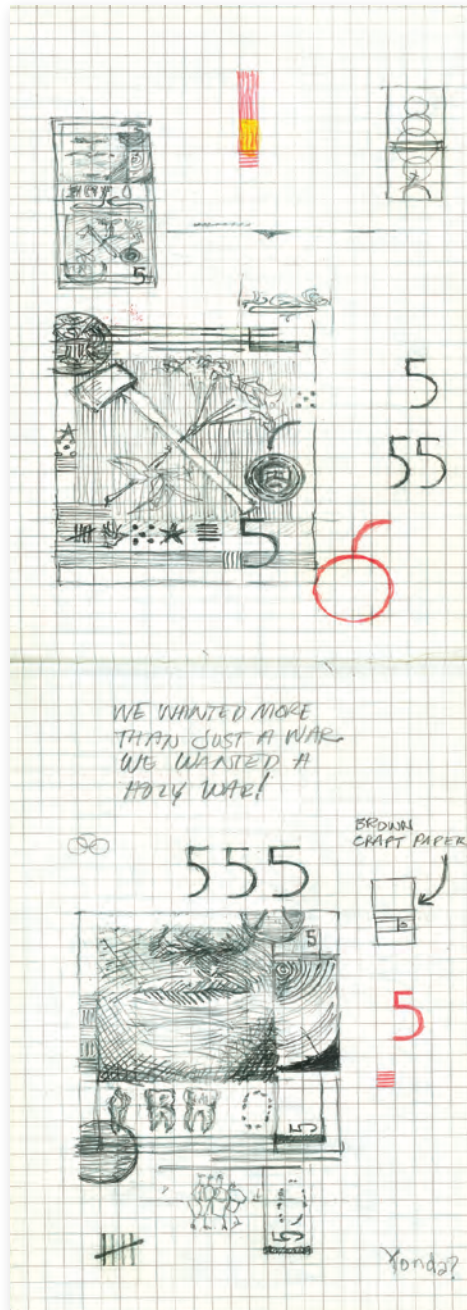 5
5
5
55
5
WE WANTED MORE
THAN JUST A WAR
WE WANTED A
HOLY WAR!
BROWN
CRAFT PAPER
555
5
5
5
5
Yonda?